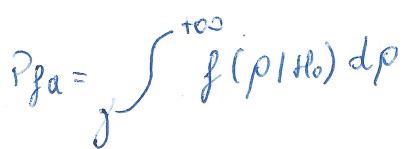 P_{fa} = \int_{\gamma}^{+\infty} f(\rho / H_0) d\rho